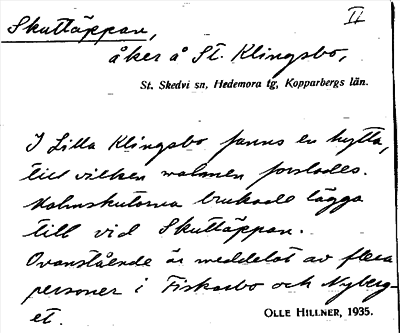 Skuttäppan, II
åker å St. Klingsbo,
St. Skedvi sn, Hedemora tg, Kopparbergs län.
I Lilla Klingsbo fanns en hytta,
till vilken malmen forslades.
Malmskutorna brukade lägga
till vid Skuttäppan.
Ovanstående är meddelat av flera
personer i Fiskarbo och Nyberg-
et. OLLE HILLNER, 1935.